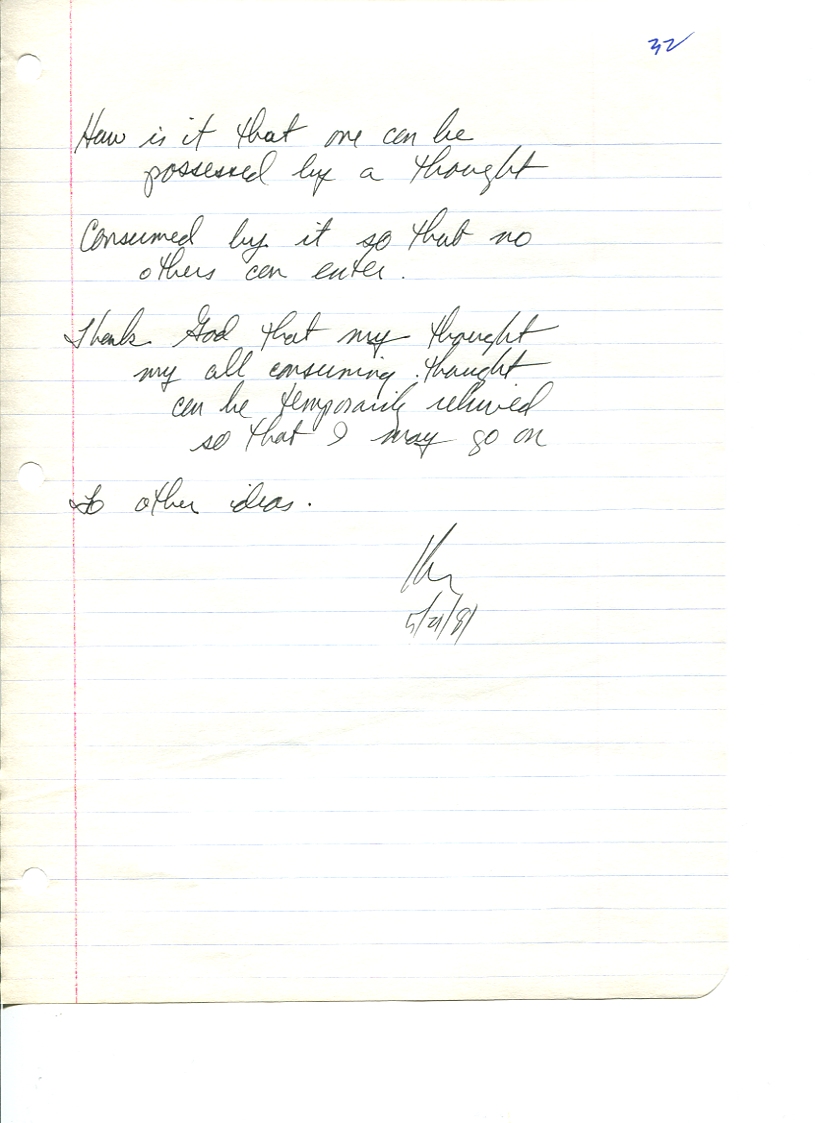 32
How is it that one can be
possessed by a thought
Consumed by it so that no
others can enter.
Thank God that my thought
my all consuming thought
can be temporarily relieved
so that I may go on
To other ideas.
5/21/81